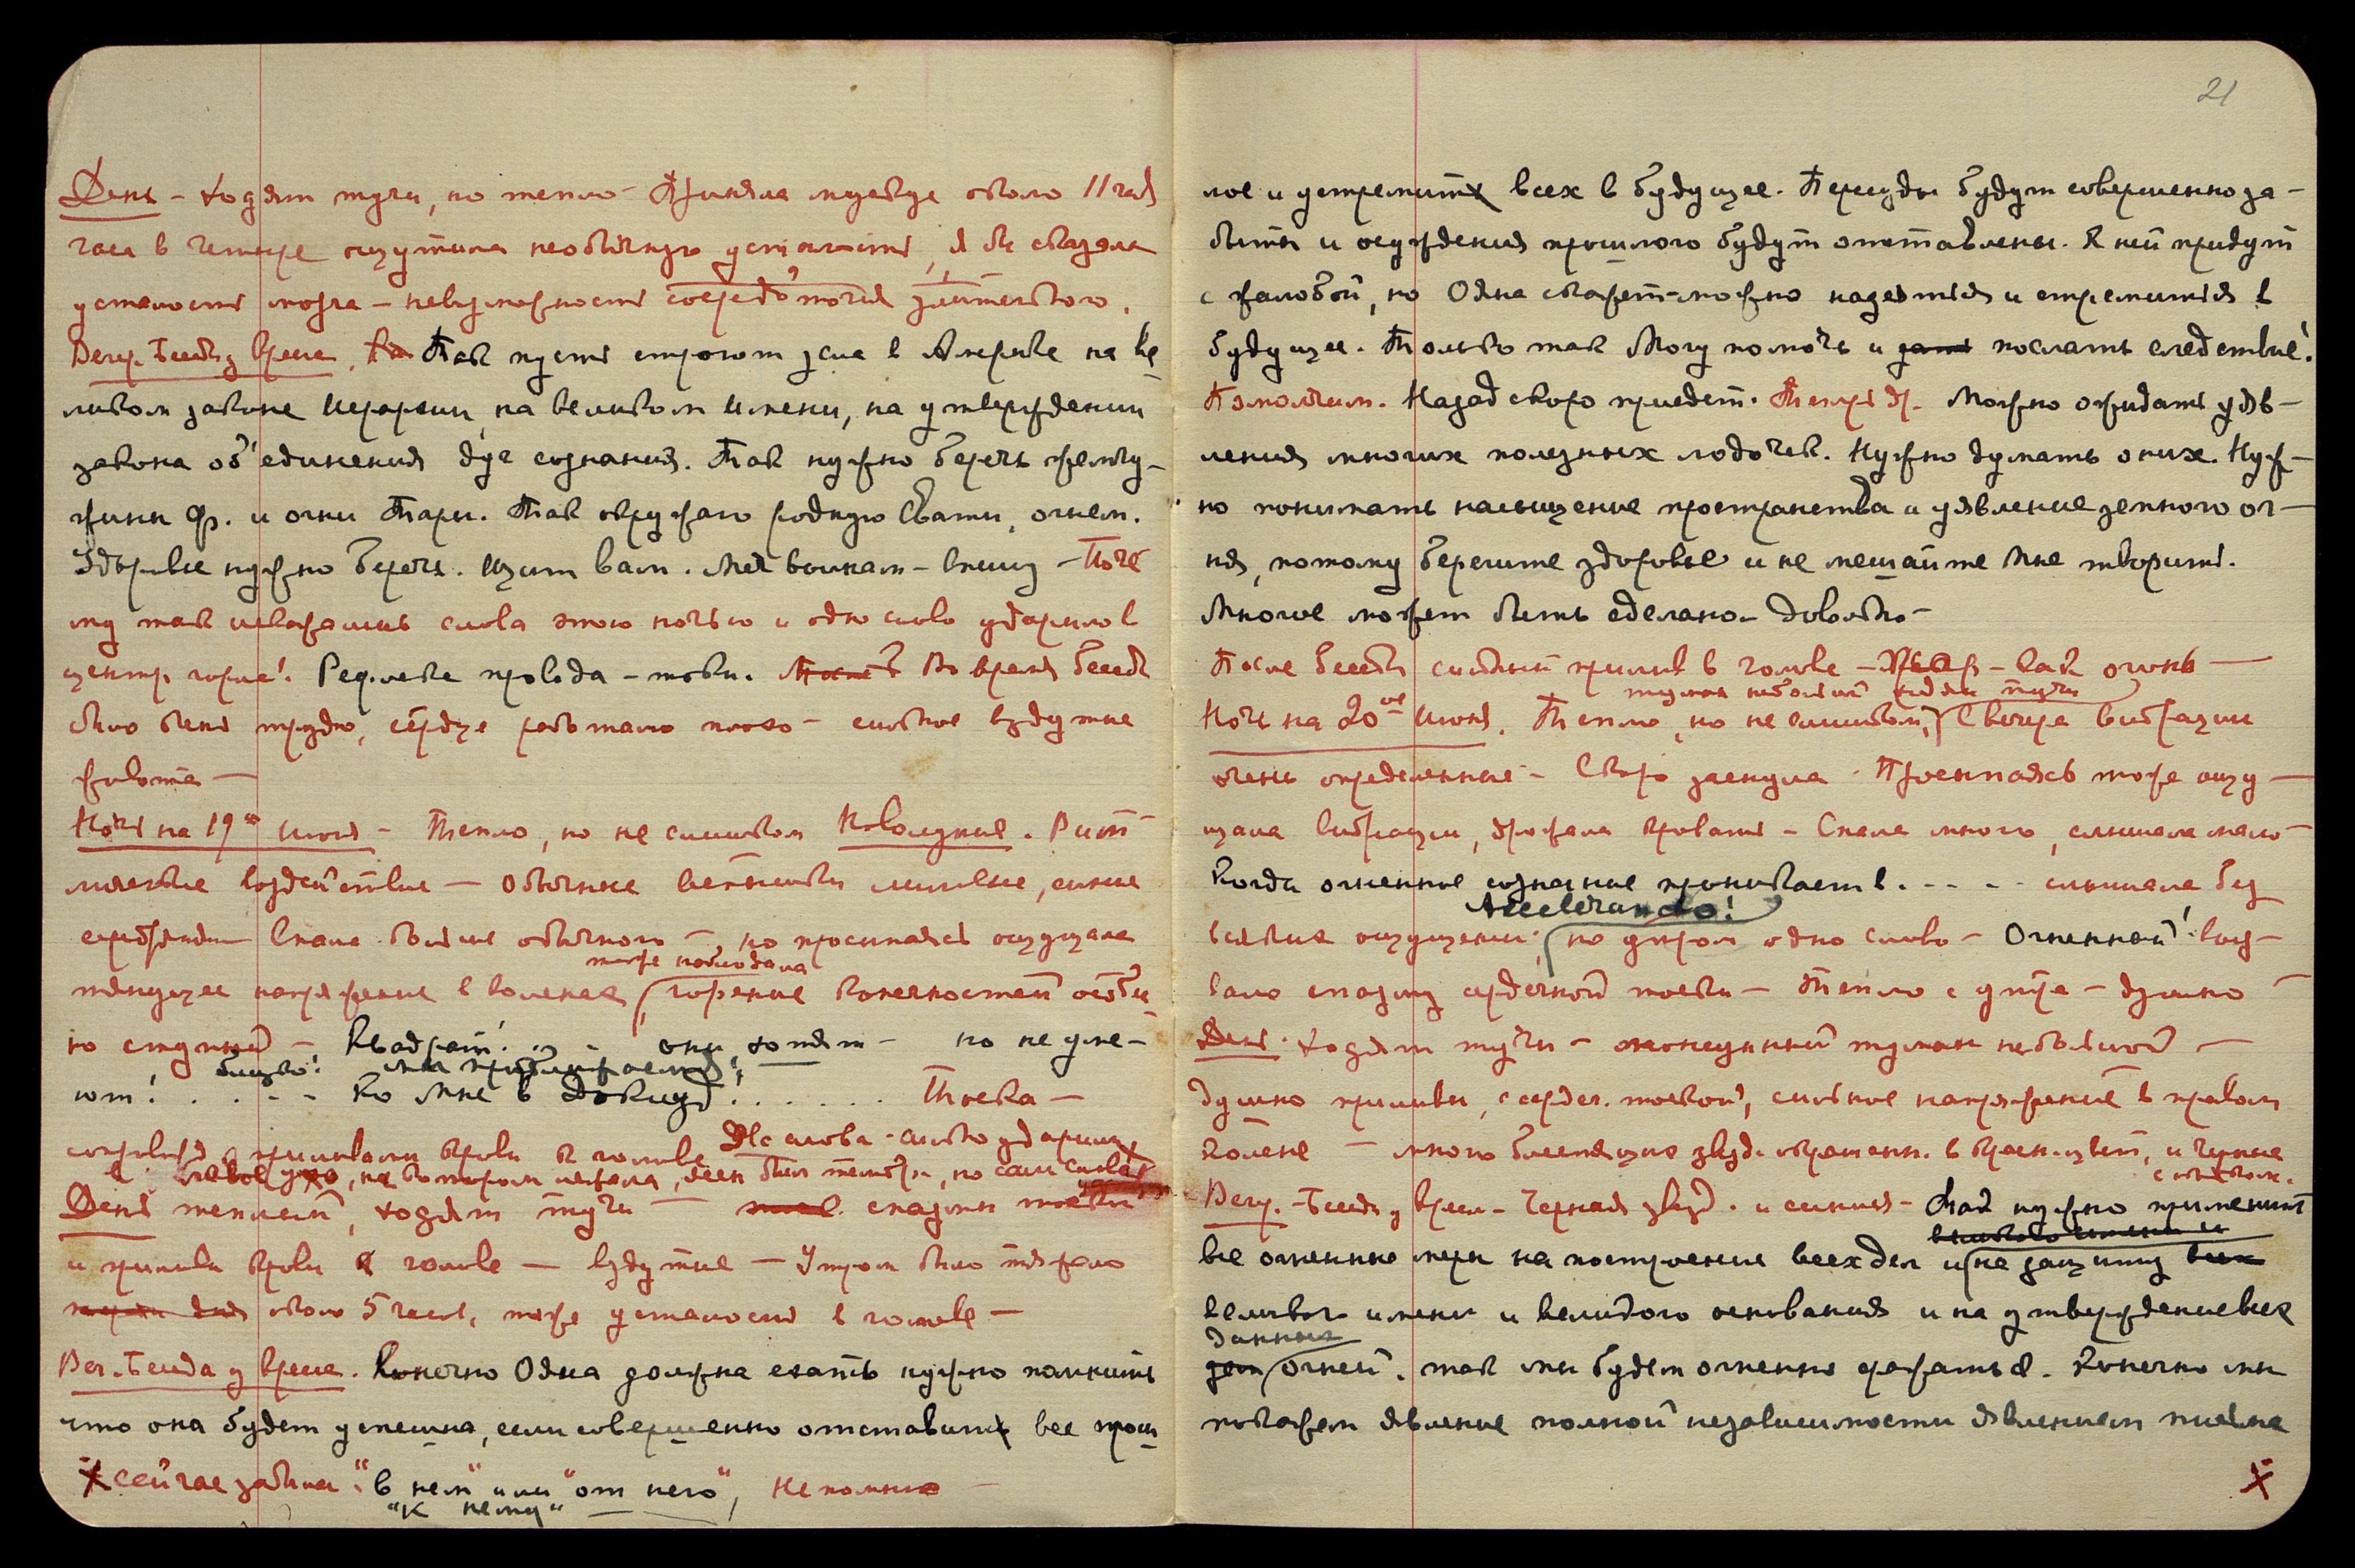 День – ходят тучи, но тепло – Приняла мускус около 11 час
часа в четыре ощутила необычную усталость, я бы сказала
усталость мозга – невозможность сосредоточия длительного.
Вечер. Беседа у врем. Так пусть строют дела в Америке на ве-
ликом законе Иерархии, на великом Имени, на утверждении
закона об'единения дуг сознания. Так нужно беречь жемчу-
жины Ф. и огни Тары. Так окружаю родную Свати, огнем.
Здоровье нужно беречь. Щит вам. Меч воинам – вниз – Поче
му так исказились слова этою ночью и одно слово ударило в
центр горла! Рефлекс провода – токи. Во время беседы
было очень трудно, сердце работало плохо – сильное вздутие
живота –
Ночь на 19ое Июня – Тепло, но не слишком Новолуние. Ритм
мическое воздействие – Обычные вспышки лиловые, синие
серебряные Спала больше обычного –, но просыпаясь ощущала
тоже наблюдала
тянущее напряжение в коленах, горение конечностей особен-
но ступней – Квадрат! . . . они хотят – но не уме-
близко! мы приближаемся!
ют! . . . . ко Мне в Докиуд! . . . . . . Тоска –
Два слова сильно ударили
солярис с приливами крови к голове
в левое ухо, на котором лежала, день был
День теплый, ходят тучи – спазмы тоски
и приливы крови к голове – вздутие – Утром было тяжело
около 5 часов, тоже усталость в голове –
Веч. Беседа у врем. Конечно Одна должна ехать нужно помнить
что она будет успешна, если совершенно отставит все прош-
х сейчас забыла "в нем" или "от него", не помню –
"к нему"
21
лое и устремит всех в будущее. Пересуды будут совершенно за-
быты и осуждения прошлого будут отставлены. К ней придут
с жалобой, но Одна скажет – можно надеяться и стремиться в
будущее. Только так Могу помочь и послать следствие!
Помолчим. Назад скоро приедет. Теперь др. Можно ожидать уяв-
ления многих полезных лодочек. Нужно думать о них. Нуж-
но понимать насыщение пространства и уявление земного ог-
ня, потому берегите здоровье и не мешайте Мне творить.
Многое может быть сделано – Довольно –
После беседы сильный прилив к голове – жар – как огонь –
туман небольшой ходят тучи
Ночь на 20ое Июня. Тепло, но не слишком, С вечера вибрации
очень определенные – Скоро заснула – Просыпаясь тоже ощу-
щала вибрации, дрожала кровать – Спала много, слышала мало –
Когда огненное сознание проникает в. - - - - слышала без
Accelerando!
всяких ощущений, но утром одно слово – Огненной! выз-
вало спазму сердечной тоски – Тепло с утра – душно –
День. ходят тучи – туман небольшой –
душно приливы, с сердеч. тоской, сильное напряжение в правом
колене – много блестящих звезд окрашен. в красн. цвет, и черные
Вечер. – Беседа у врем – Черная звезд. и синия – Так нужно применить
все огненные меры на построение всех дел и на защиту
великого имени и великого основания и на утверждение всех
данных
огней. так мы будем огненно сражаться. Конечно мы
покажем явление полной независимости явлением письма
х